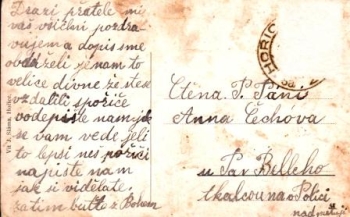 Drazí přátele mi
vás všichni pozdra
vujem a dopis sme
obdrželi je nam to
velice divne že ste se
vzdálili spořiče
vodepište nam jak
se vam vede jeli
to lepši neš pořiči
napište nam
jak si viděláte
zatim buťte z Bohem
HOŘIC
Ctěna P. Paní
Anna Čechóva
u Par Belleho
tkalcovna v Polici
nad metují